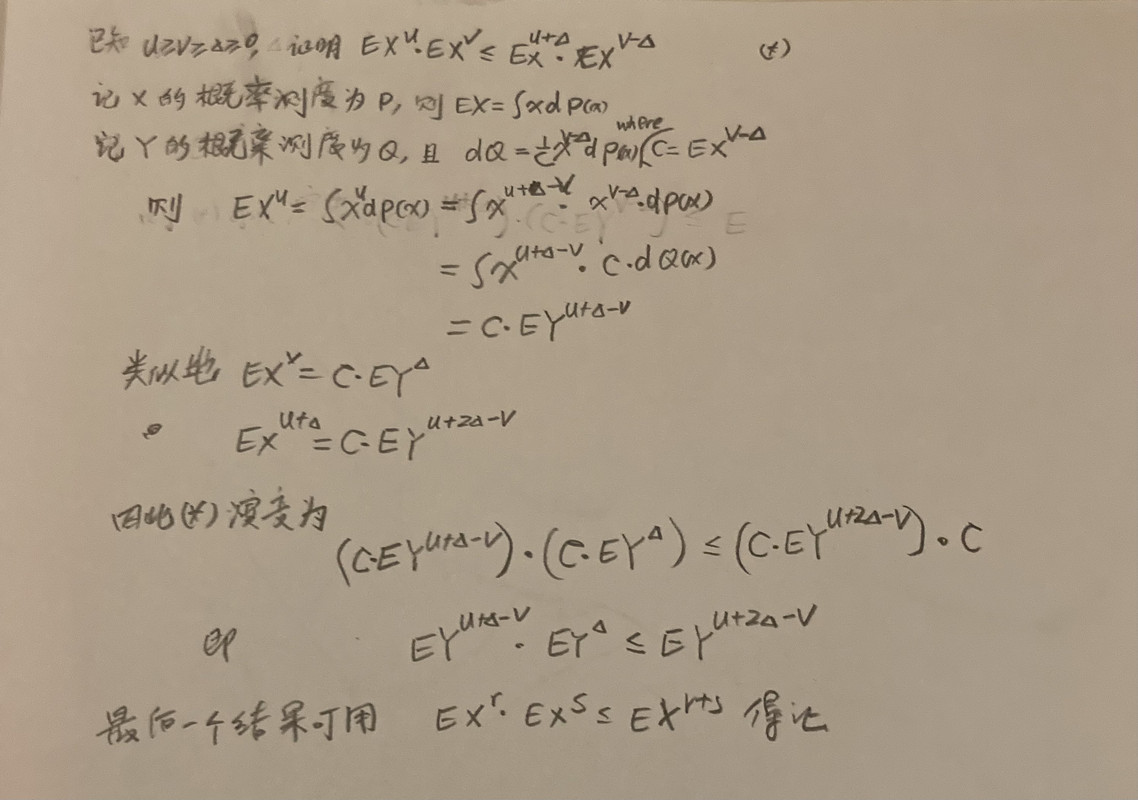 已知 u≥v≥Δ≥0, 证明 EX^u·EX^v ≤ EX^{u+Δ}·EX^{v-Δ} (*)
记 X 的概率测度为 P, 则 EX=∫xdP(x)
记 Y 的概率测度为 Q, 且 dQ=\frac{1}{C}x^{v-Δ}dP(x) (where C=EX^{v-Δ}
则 EX^u=∫x^u dP(x)=∫x^{u+Δ-v}·x^{v-Δ}·dP(x)
=∫x^{u+Δ-v}·C·dQ(x)
=C·EY^{u+Δ-v}
类似地 EX^v=C·EY^Δ
EX^{u+Δ}=C·EY^{u+2Δ-v}
因此(*)演变为
(C·EY^{u+Δ-v})·(C·EY^Δ) ≤ (C·EY^{u+2Δ-v})·C
即 EY^{u+Δ-v}·EY^Δ ≤ EY^{u+2Δ-v}
最后一个结果可用 EX^r·EX^s ≤ EX^{r+s} 得证